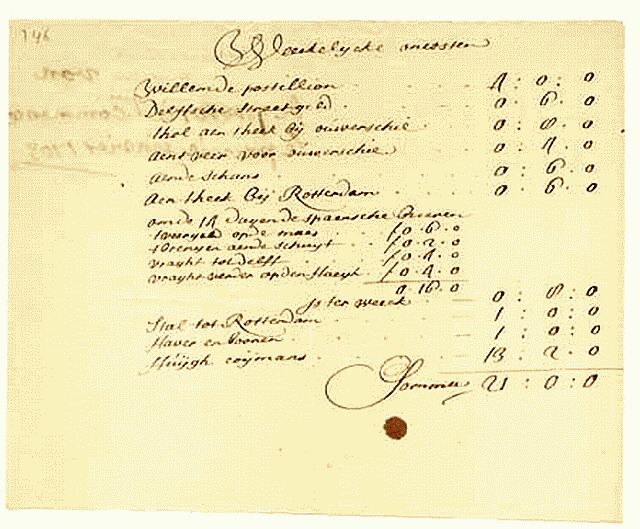 146
Weekelycke oncosten
Willem de postillion 4 : 0 : 0
Delfsche straet geld 0 : 6 . 0
thol aen thek bij ouwerschie 0 : 8 . 0
aent veer voor ouwerschie 0 : 4 . 0
aende schans 0 : 6 . 0
aen thek bij Rotterdam 0 : 6 . 0
omde 14 dagen de spaensche brieven
op de maes f 0 . 6 . 0
aende schuyt f 0 . 2 . 0
vraght tot delft f 0 . 4 . 0
vraght verder op den Haegh f 0 . 4 . 0
0 . 16 . 0
is ter weeck 0 : 8 : 0
Stal tot Rotterdam 1 : 0 : 0
Haver en 1 : 0 : 0
Huijgh 13 : 2 . 0
Somma 21 : 0 : 0